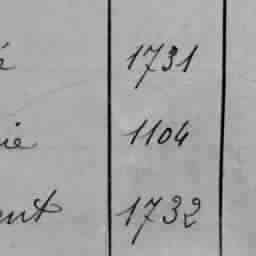 é 1731
ie 1104
ent 1732